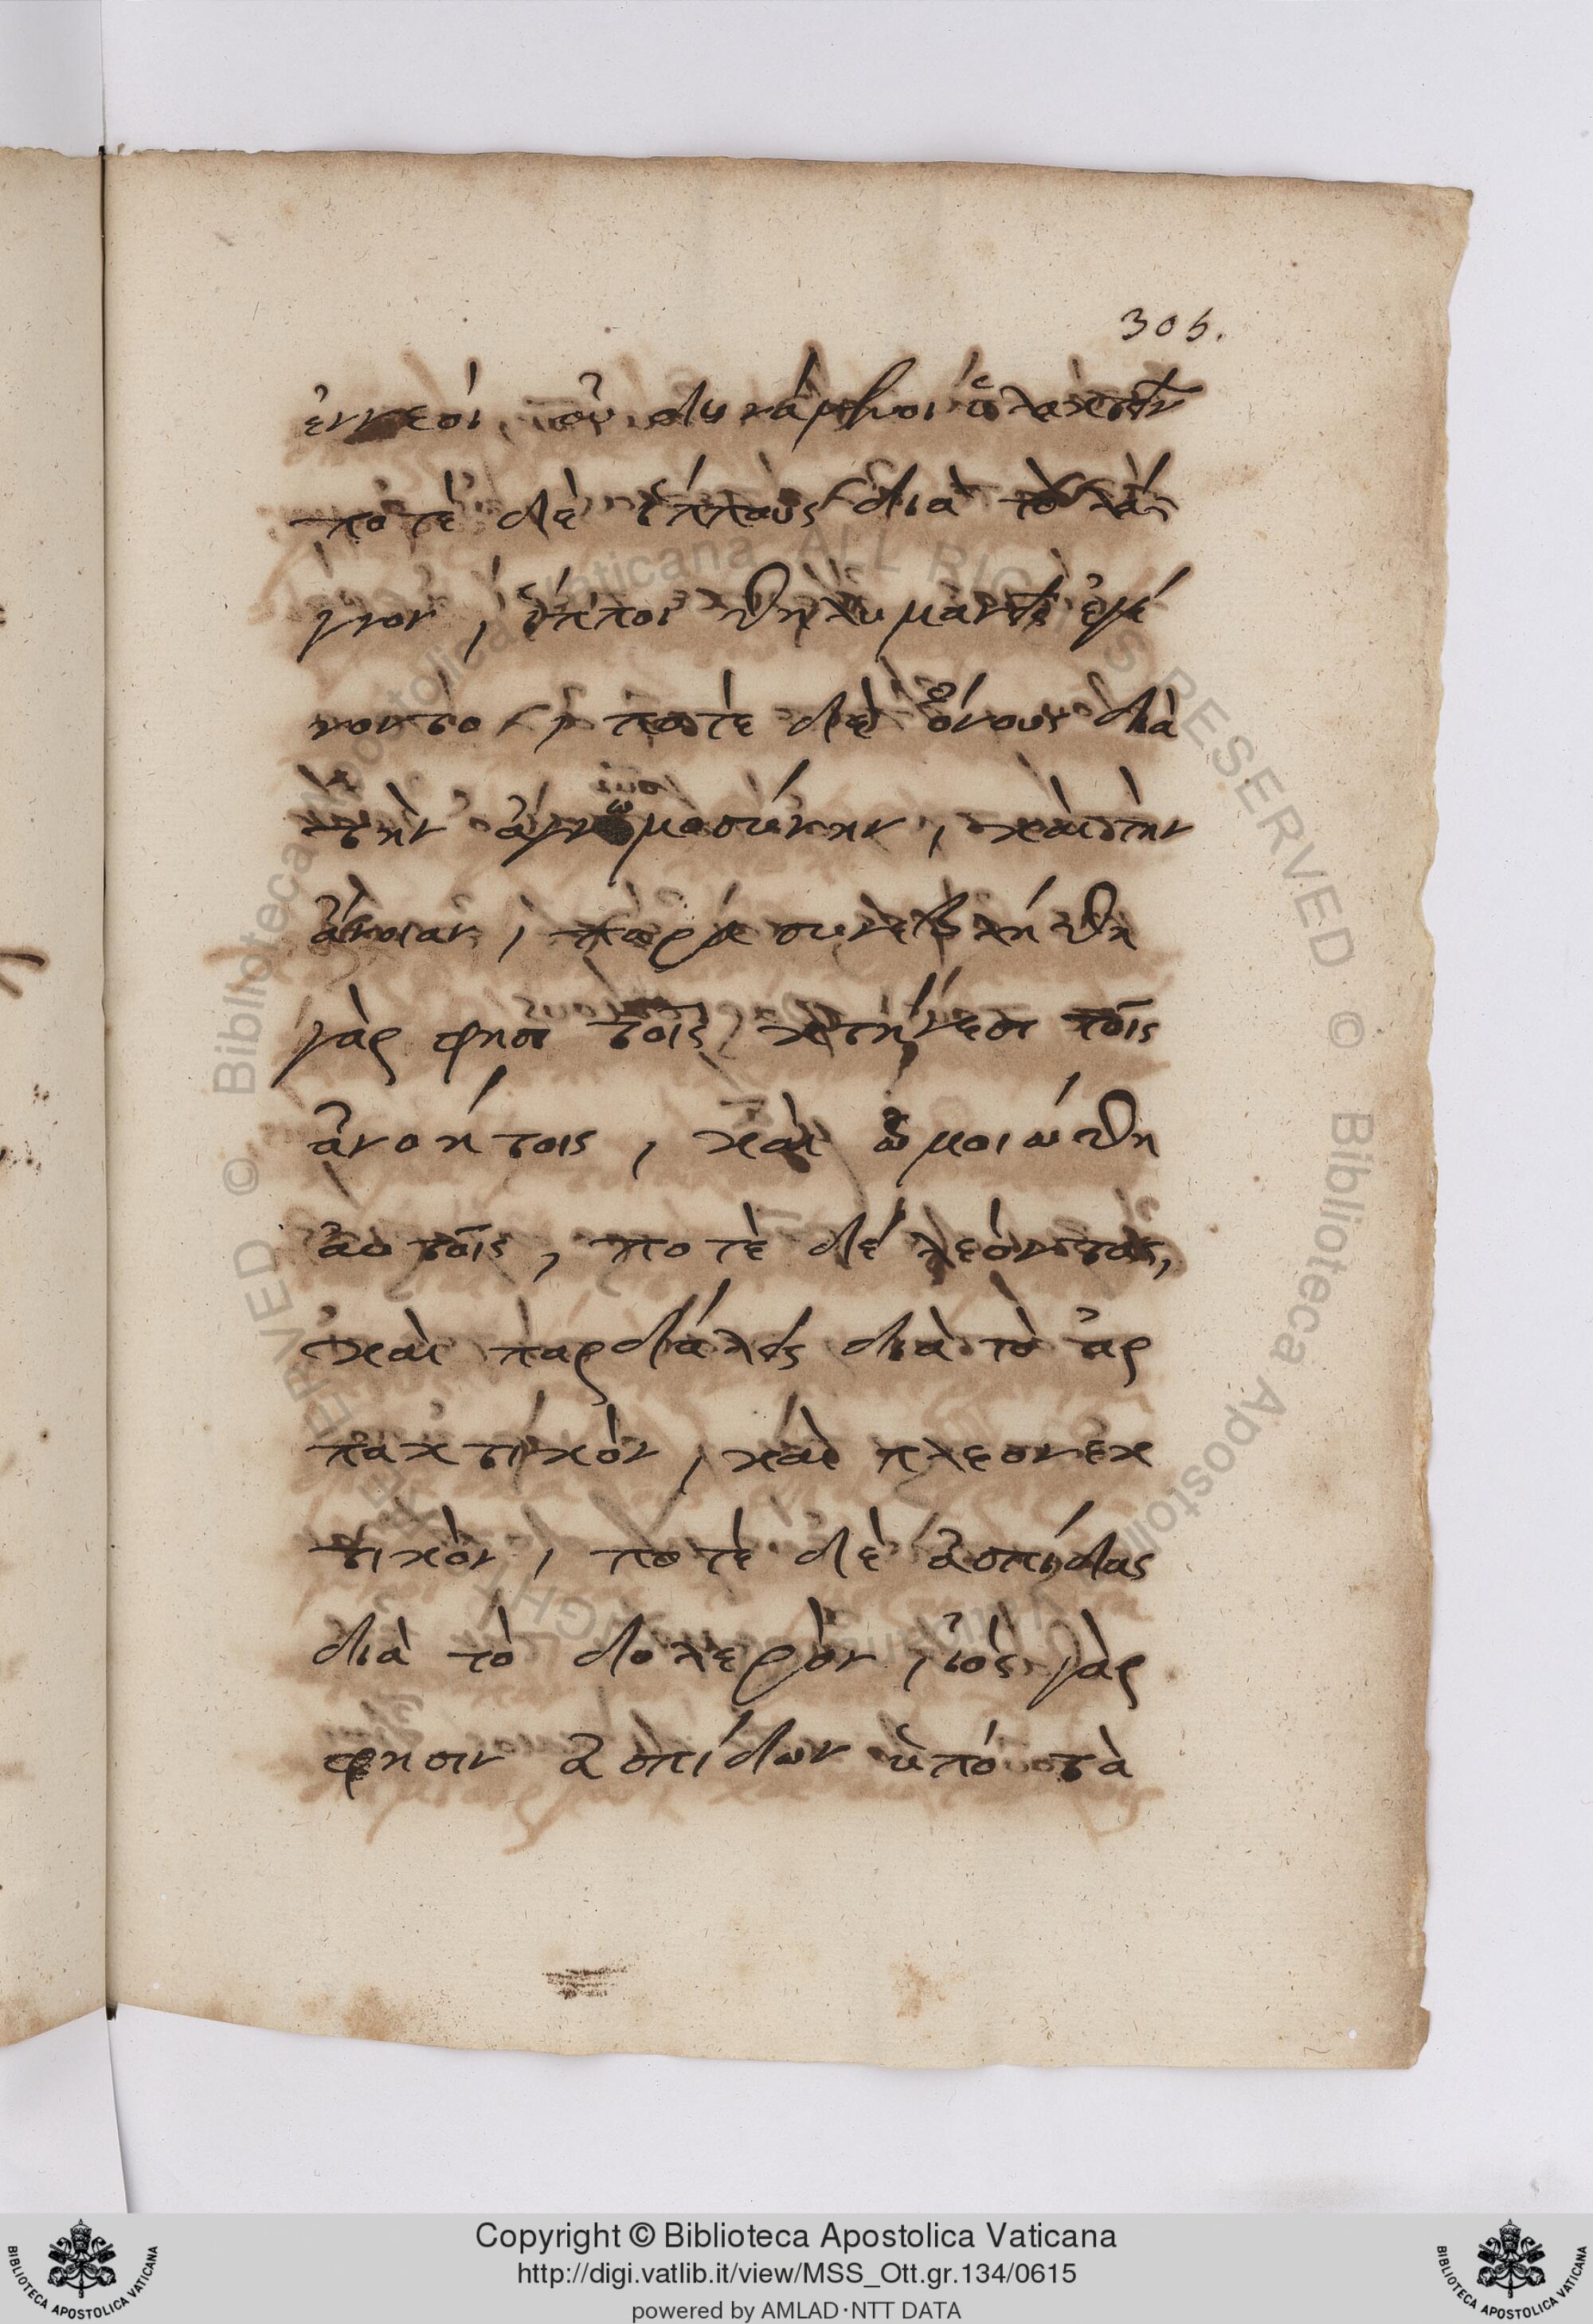 305.
ἐννεοὶ, οὐ δυνάμενοι ὑλακτεῖν
ποτὲ δὲ ἵππους διὰ τὸ λά
γνον, ἵπποι θηλυμανεῖς ἐγέ
νοντο, ποτὲ δὲ ὄνους διὰ
τὴν ἀγνωμοσύνην, καὶ τὴν
ἄνοιαν, παρὰ συνεβλήθη
γὰρ φησι τοῖς κτήνεσι τοῖς
ἀνοήτοις, καὶ ὡμοιώθη
αὐτοῖς, ποτὲ δέ λεόντας,
καὶ παρδάλεις διὰ τὸ ἁρ
πακτικὸν, καὶ πλεονεκ
τικὸν, ποτὲ δὲ ἀσπίδας
διὰ τὸ δολερὸν, ἰὸς γὰρ
φησιν ἀσπίδων ὑπό τὰ
© Biblioteca Apostolica Vaticana ALL RIGHTS RESERVED
Copyright © Biblioteca Apostolica Vaticana
http://digi.vatlib.it/view/MSS_Ott.gr.134/0615
powered by AMLAD·NTT DATA
BIBLIOTECA APOSTOLICA VATICANA
BIBLIOTECA APOSTOLICA VATICANA